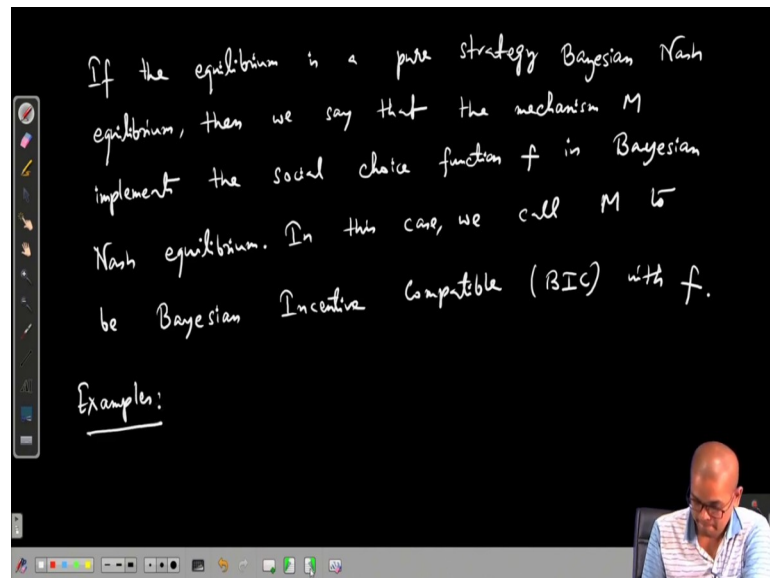 If the equilibrium is a pure strategy Bayesian Nash
equilibrium, then we say that the mechanism M
implement the social choice function f in Bayesian
Nash equilibrium. In this case, we call M to
be Bayesian Incentive Compatible (BIC) with f.
Examples: